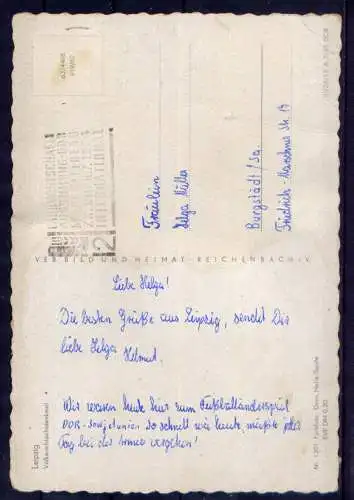 Leipzig
Völkerschlachtdenkmal
VEB BILD UND HEIMAT · REICHENBACH i. V.
Fräulein
Helga Müller
Burgstädt/Sa
Friedrich-Marschner Str. 19
Liebe Helga!
Die besten Grüße aus Leipzig, sendet Dir
liebe Helga Helmut.
Wir waren heute hier zum Fußballländerspiel
DDR-Sowjetunion so schnell wie heute müßte jeder
Tag bei der Armee vergehen!
EVP DM 0,20